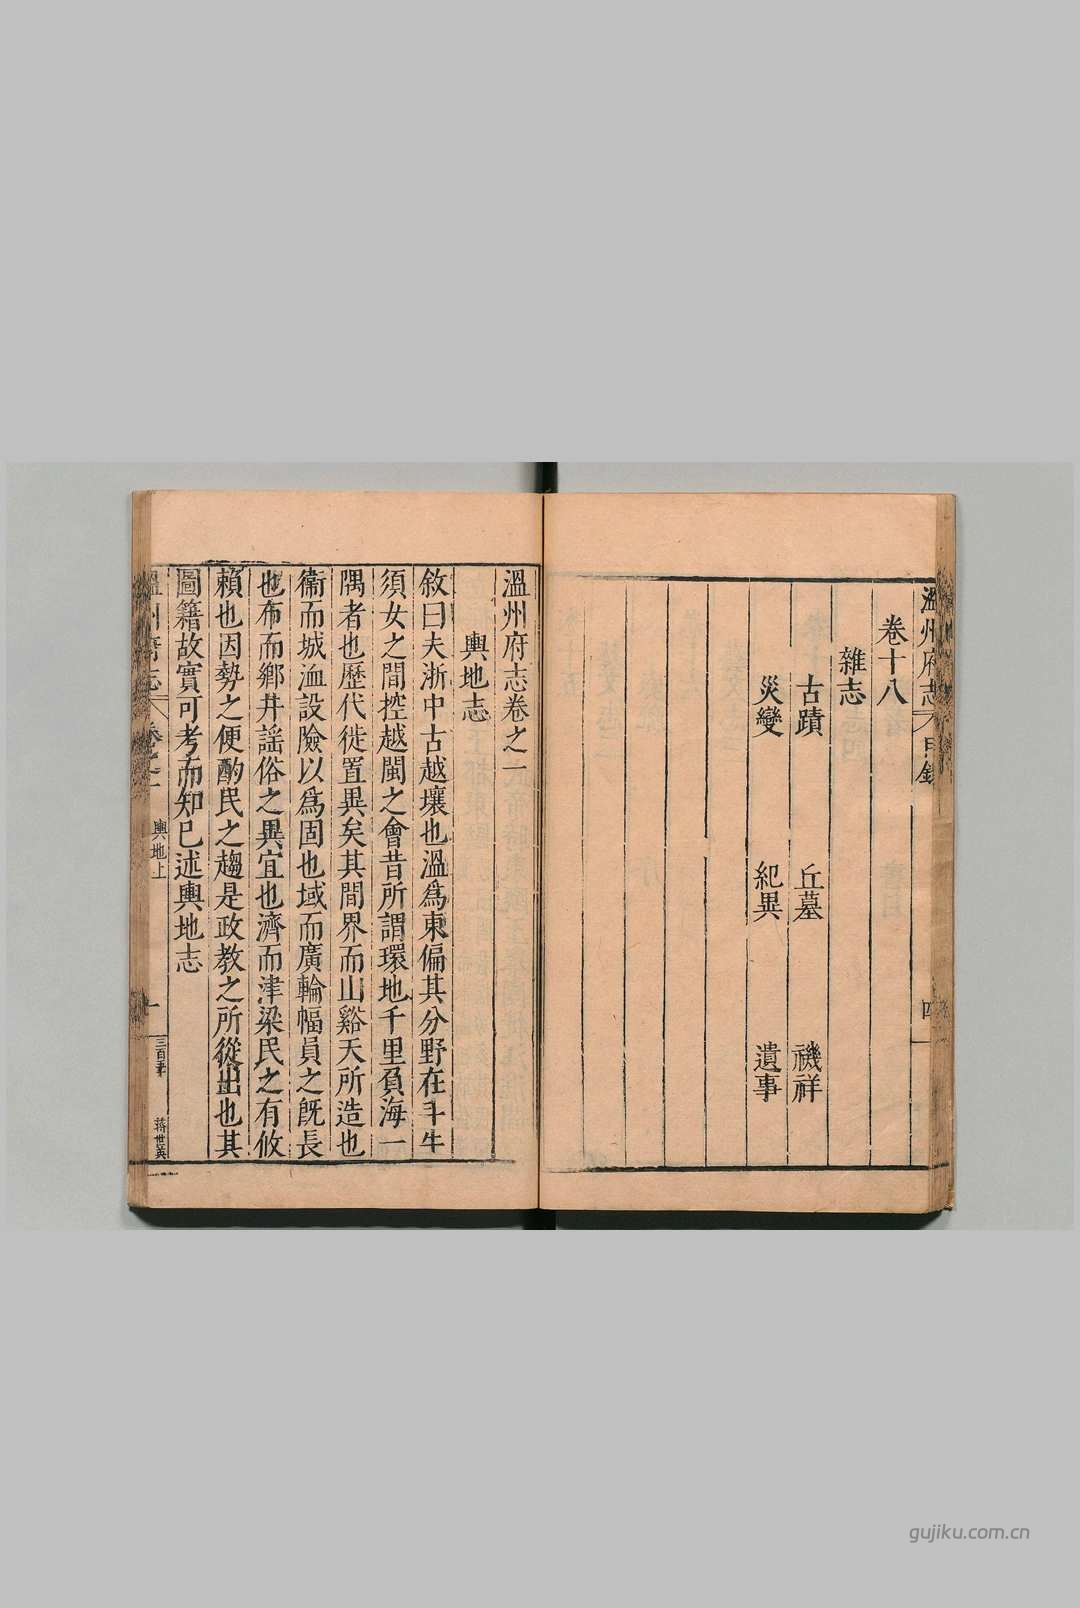 溫州府志 目錄 四
卷十八
雜志
古蹟 丘墓 禨祥
災變 紀異 遺事
溫州府志卷之一
輿地志
敘曰夫浙中古越壤也溫爲東偏其分野在斗牛
須女之間控越閩之會昔所謂環地千里負海一
隅者也歷代徙置異矣其間界而山谿天所造也
衞而城洫設險以爲固也域而廣輪幅員之旣長
也布而鄉井謠俗之異宜也濟而津梁民之有攸
賴也因勢之便酌民之趨是政教之所從出也其
圖籍故實可考而知已述輿地志
溫州府志 卷之一 輿地上 一 三百五十 蔣世英
gujiku.com.cn